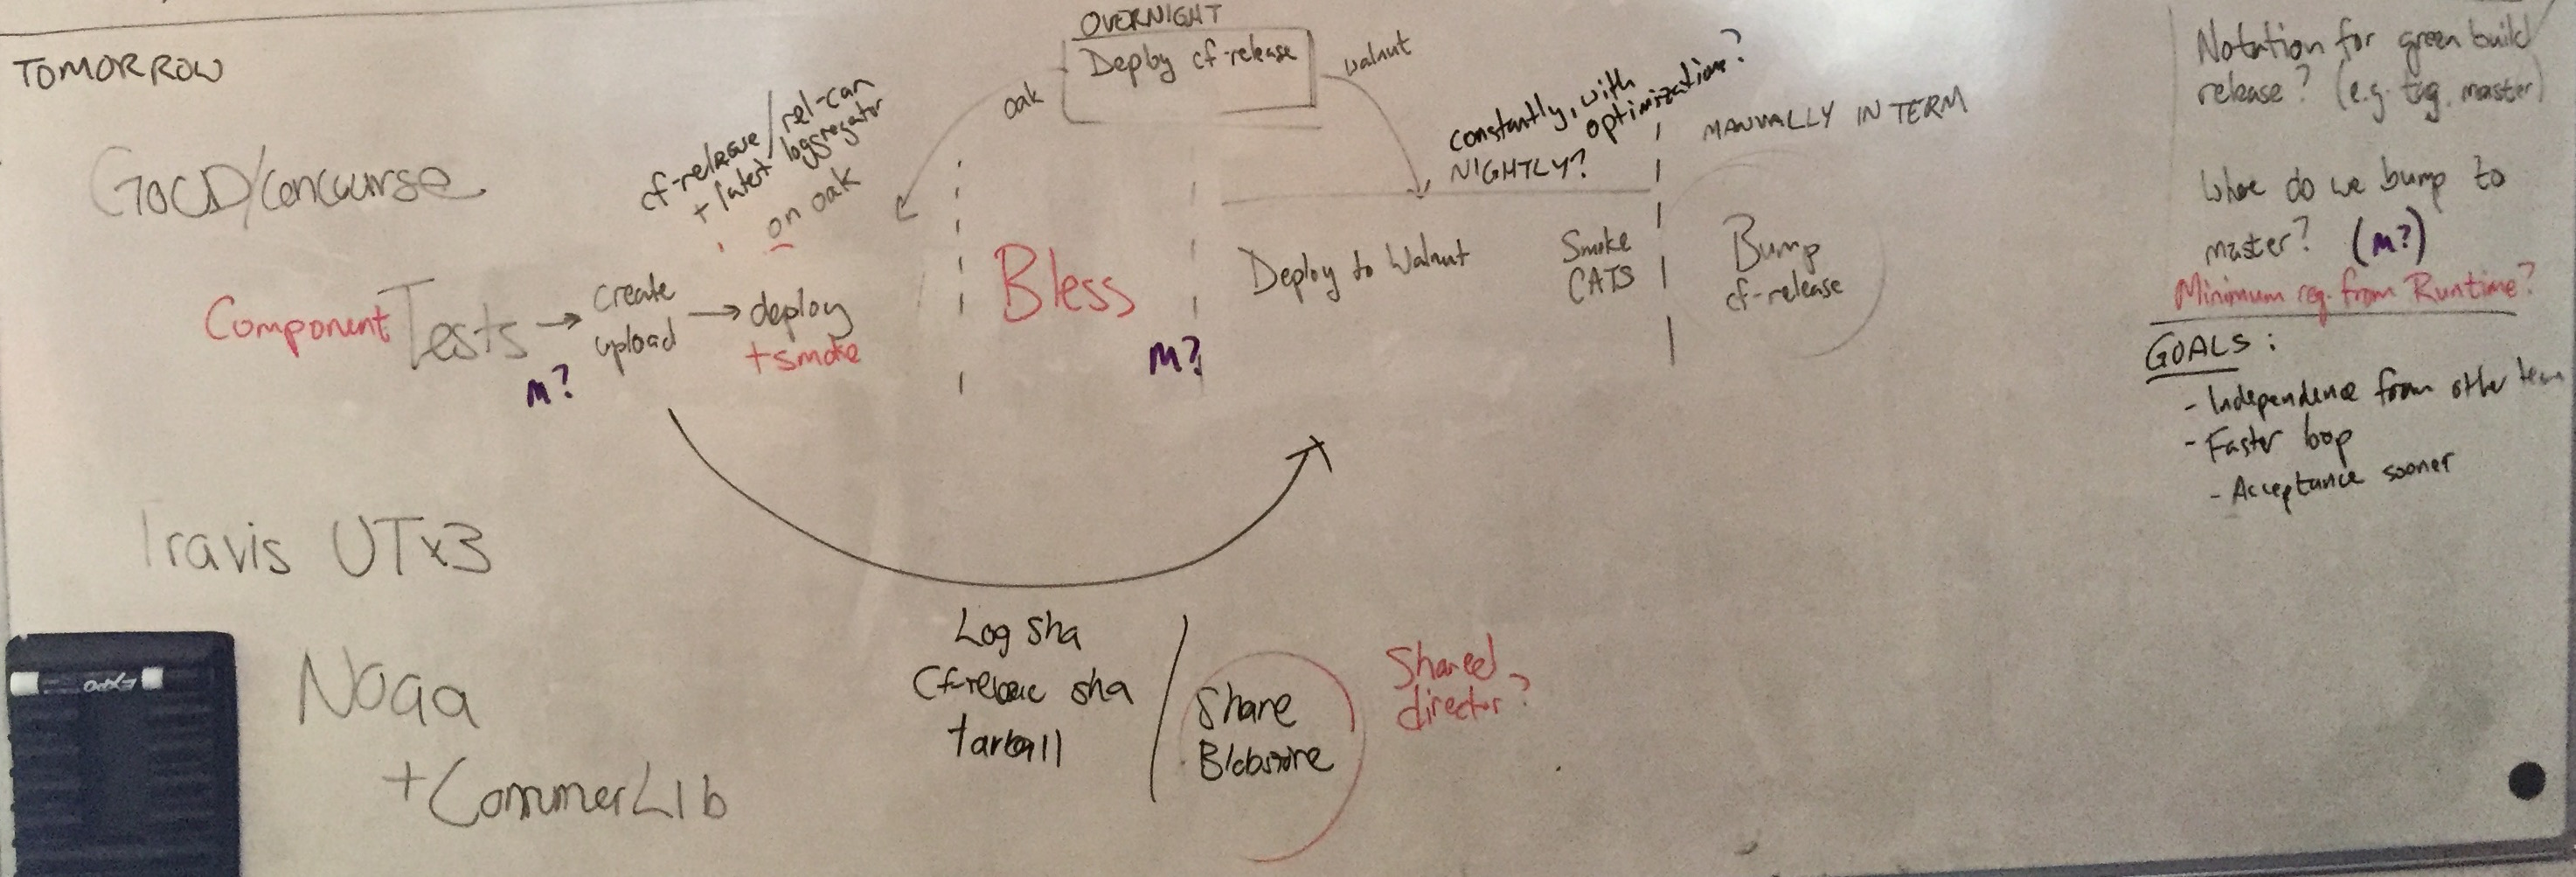 TOMORROW
OVERNIGHT
Deploy cf-release
oak
walnut
GoCD/Concourse
cf-release/rel-can
+ latest loggregator
on oak
constantly, with
optimizations?
NIGHTLY?
MANUALLY IN TERM
Component Tests → create
upload → deploy
+ smoke
M?
Bless
M?
Deploy to Walnut
Smoke
CATS
Bump
cf-release
Travis UTx3
Noaa
+ConsumerLib
Log sha
Cf-release sha
tarball
Share
Blobstore
Shared
director?
Notation for green build
release? (e.g. tag, master)
Where do we bump to
master? (M?)
Minimum req. from Runtime?
GOALS:
- Independence from other team
- Faster loop
- Acceptance sooner
EXPO